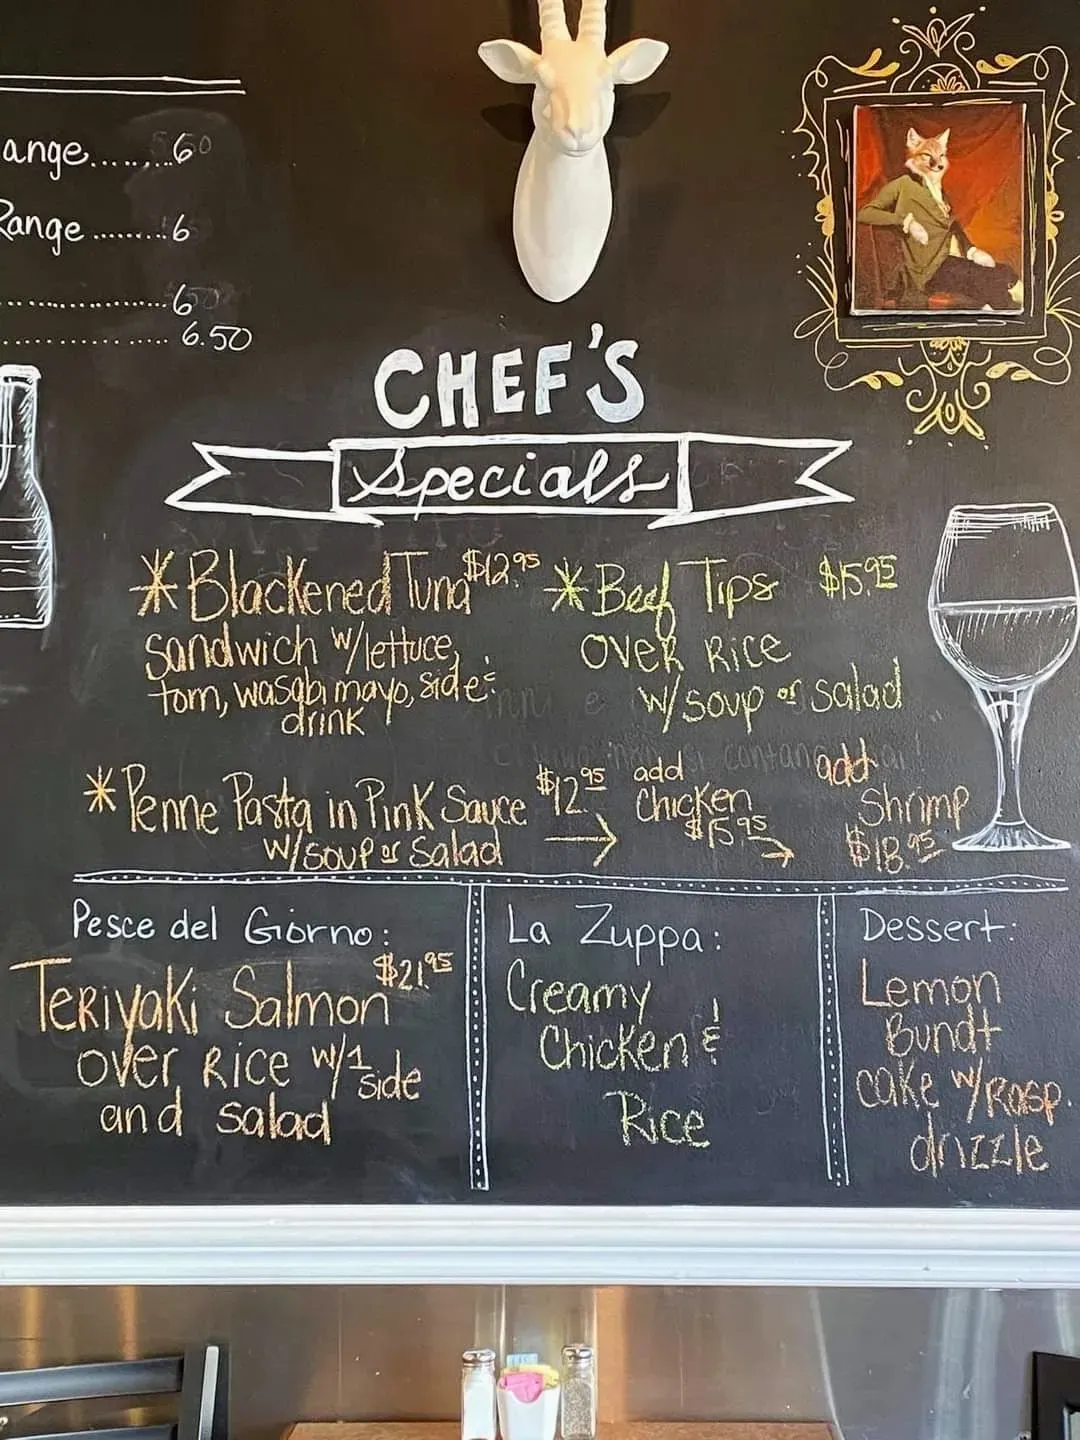 ange........60
Range........6
................6
................6.50
CHEF'S
Specials
*Blackened Tuna $12.95
sandwich w/lettuce,
tom, wasabi mayo, side &
drink
*Beef Tips $15.95
over Rice
w/soup or salad
*Penne Pasta in Pink Sauce $12.95
w/soup or salad →
add
chicken
$15.95 →
add
Shrimp
$18.95
Pesce del Giorno:
Teriyaki Salmon $21.95
over Rice w/1 side
and salad
La Zuppa:
Creamy
Chicken &
Rice
Dessert:
Lemon
Bundt
cake w/Rasp.
drizzle